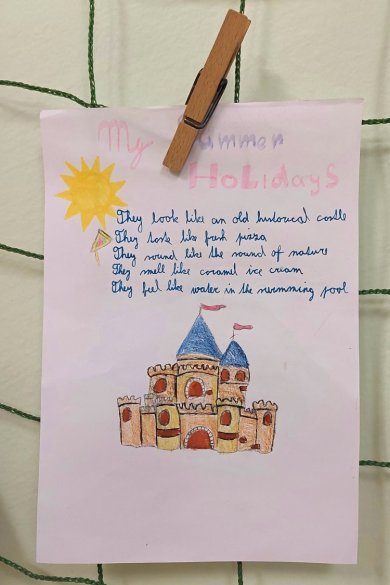 My Summer
Holidays
They look like an old historical castle
They taste like fresh pizza
They sound like the sound of nature
They smell like caramel ice cream
They feel like water in the swimming pool